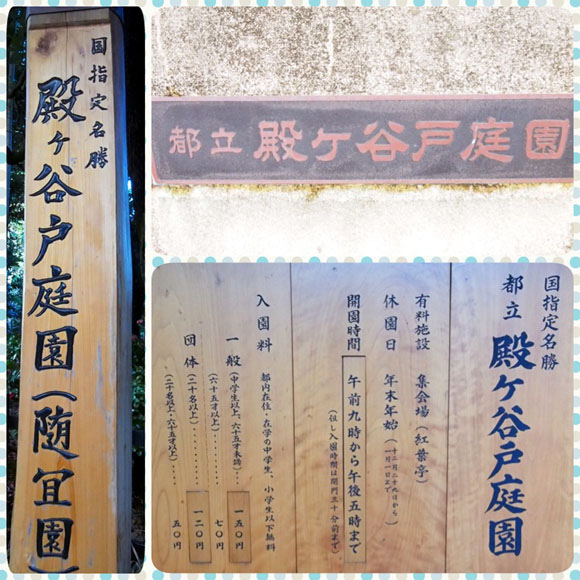 国指定名勝
殿ヶ谷戸庭園(随冝園)
都立殿ヶ谷戸庭園
国指定名勝
都立 殿ヶ谷戸庭園
有料施設 集会場(紅葉亭)
休園日 年末年始(十二月二十九日から一月一日まで)
開園時間 午前九時から午後五時まで
(但し入園時間は閉門三十分前まで)
入園料 都内在住・在学の中学生、小学生以下無料
一般(中学生以上、六十五才未満)‥‥ 一五〇円
(六十五才以上)‥‥‥‥ 七〇円
団体(二十名以上)‥‥‥‥ 一二〇円
(二十名以上・六十五才以上)‥‥ 五〇円